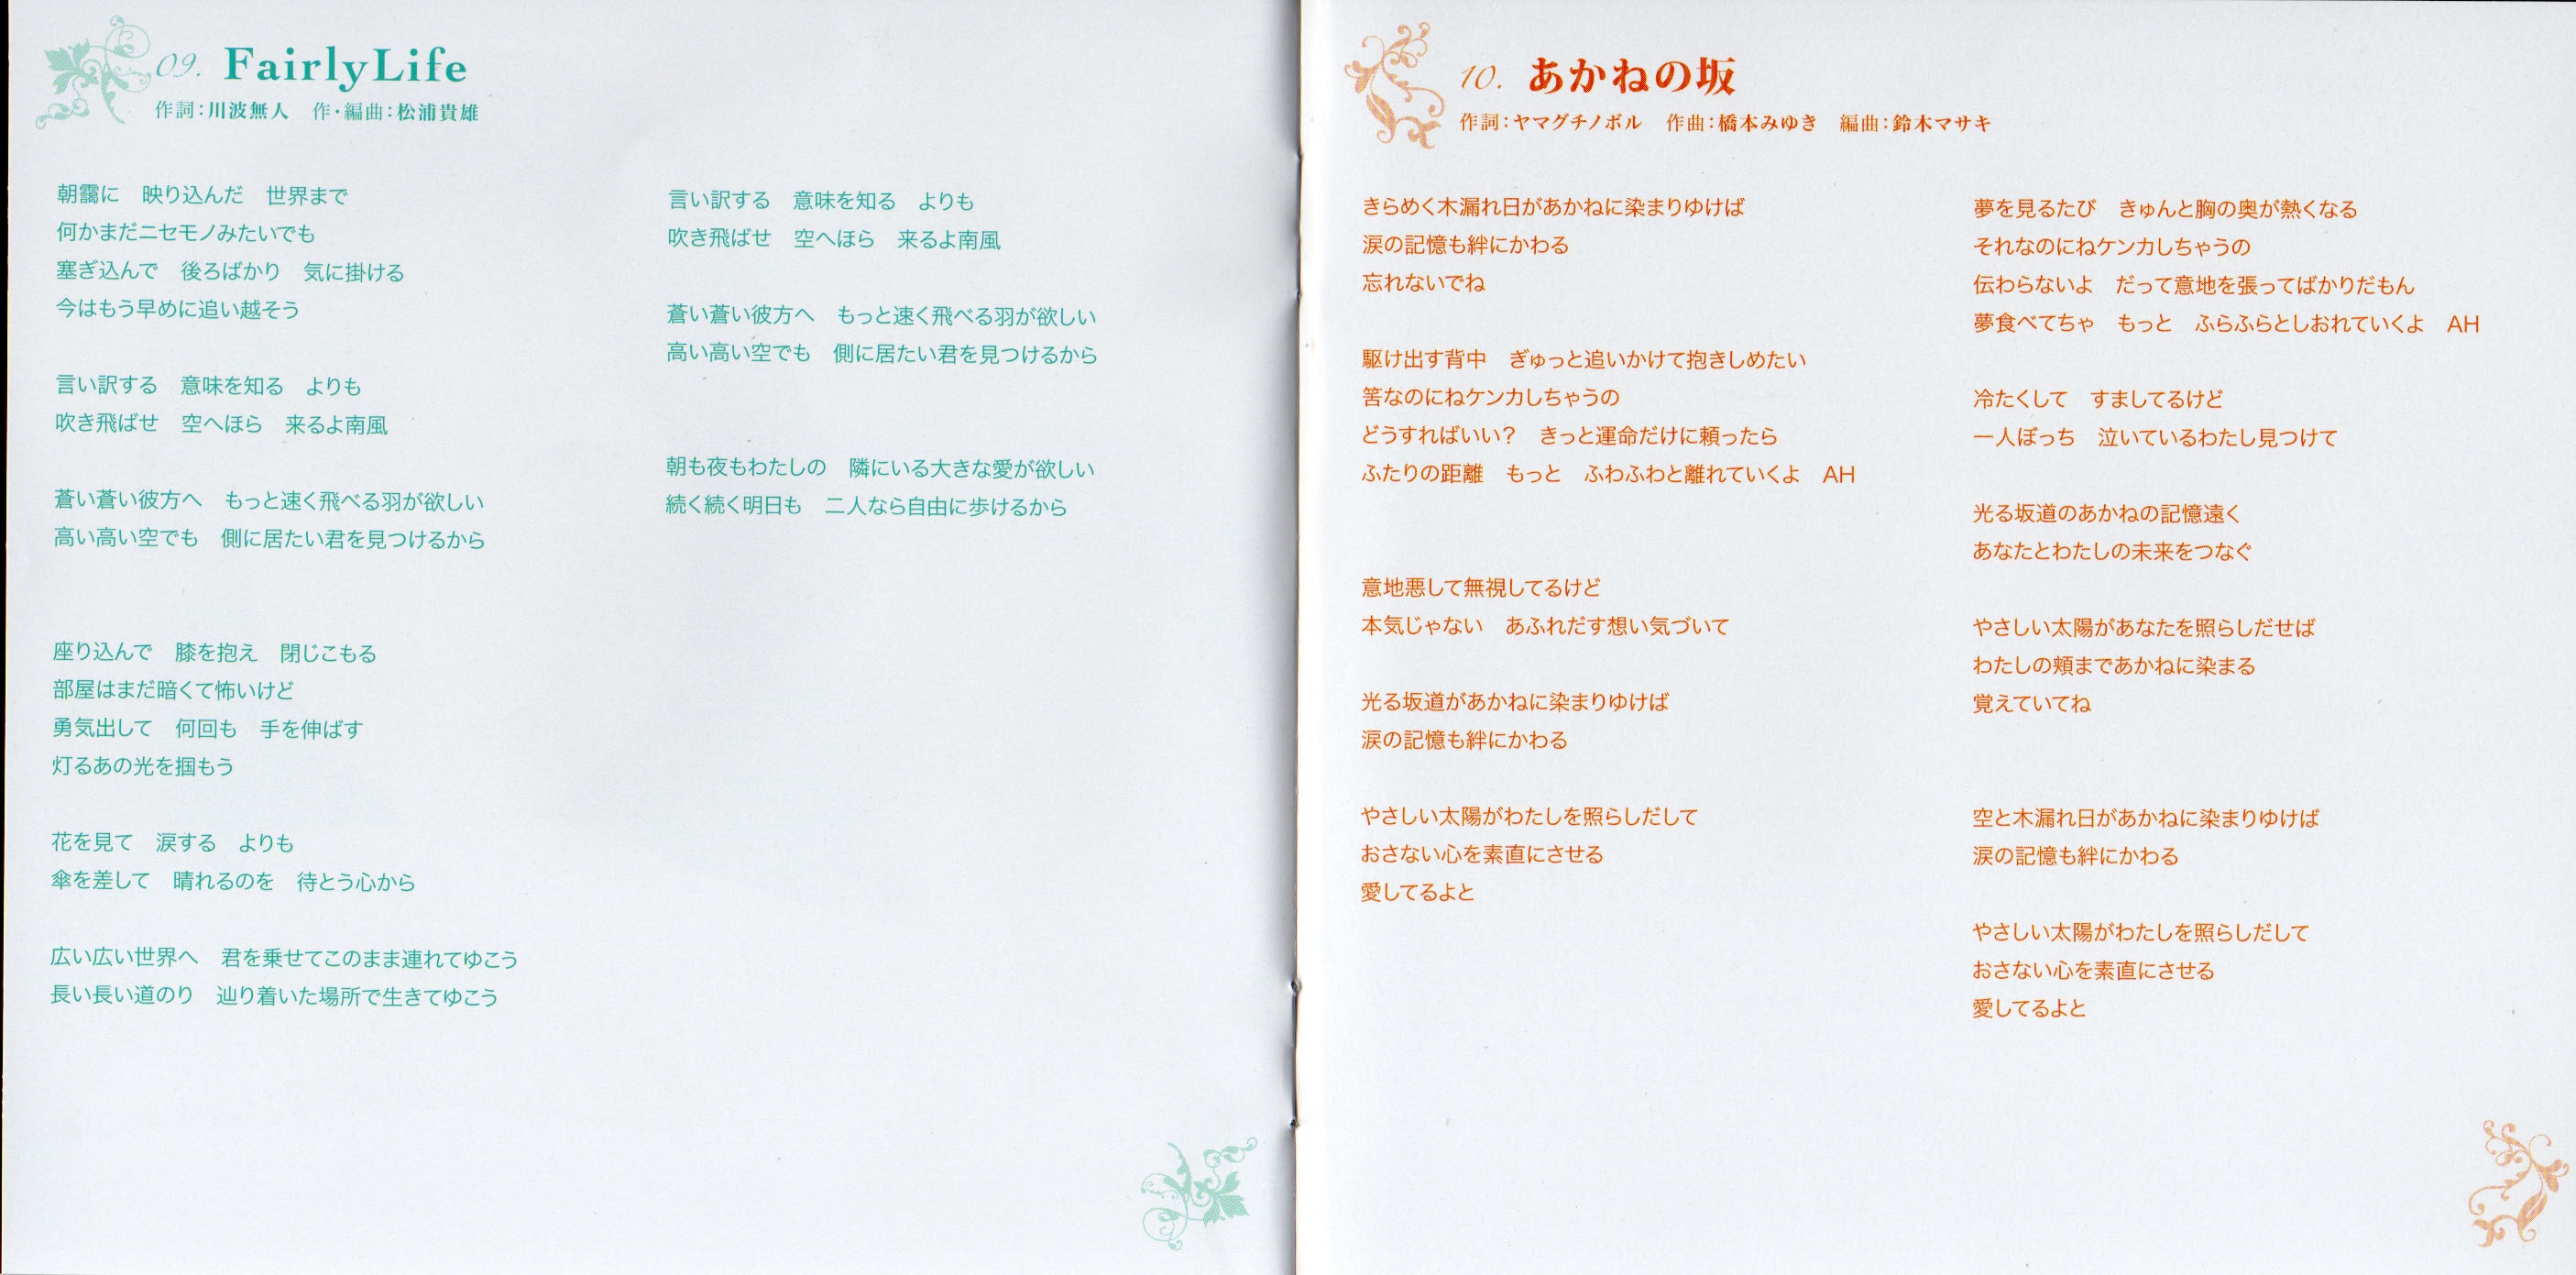 09. FairlyLife
作詞:川波無人　作・編曲:松浦貴雄
朝靄に　映り込んだ　世界まで
何かまだニセモノみたいでも
塞ぎ込んで　後ろばかり　気に掛ける
今はもう早めに追い越そう
言い訳する　意味を知る　よりも
吹き飛ばせ　空へほら　来るよ南風
蒼い蒼い彼方へ　もっと速く飛べる羽が欲しい
高い高い空でも　側に居たい君を見つけるから
座り込んで　膝を抱え　閉じこもる
部屋はまだ暗くて怖いけど
勇気出して　何回も　手を伸ばす
灯るあの光を掴もう
花を見て　涙する　よりも
傘を差して　晴れるのを　待とう心から
広い広い世界へ　君を乗せてこのまま連れてゆこう
長い長い道のり　辿り着いた場所で生きてゆこう
言い訳する　意味を知る　よりも
吹き飛ばせ　空へほら　来るよ南風
蒼い蒼い彼方へ　もっと速く飛べる羽が欲しい
高い高い空でも　側に居たい君を見つけるから
朝も夜もわたしの　隣にいる大きな愛が欲しい
続く続く明日も　二人なら自由に歩けるから
10. あかねの坂
作詞:ヤマグチノボル　作曲:橋本みゆき　編曲:鈴木マサキ
きらめく木漏れ日があかねに染まりゆけば
涙の記憶も絆にかわる
忘れないでね
駆け出す背中　ぎゅっと追いかけて抱きしめたい
筈なのにねケンカしちゃうの
どうすればいい?　きっと運命だけに頼ったら
ふたりの距離　もっと　ふわふわと離れていくよ　AH
意地悪して無視してるけど
本気じゃない　あふれだす想い気づいて
光る坂道があかねに染まりゆけば
涙の記憶も絆にかわる
やさしい太陽がわたしを照らしだして
おさない心を素直にさせる
愛してるよと
夢を見るたび　きゅんと胸の奥が熱くなる
それなのにねケンカしちゃうの
伝わらないよ　だって意地を張ってばかりだもん
夢食べてちゃ　もっと　ふらふらとしおれていくよ　AH
冷たくして　すましてるけど
一人ぼっち　泣いているわたし見つけて
光る坂道のあかねの記憶遠く
あなたとわたしの未来をつなぐ
やさしい太陽があなたを照らしだせば
わたしの頬まであかねに染まる
覚えていてね
空と木漏れ日があかねに染まりゆけば
涙の記憶も絆にかわる
やさしい太陽がわたしを照らしだして
おさない心を素直にさせる
愛してるよと